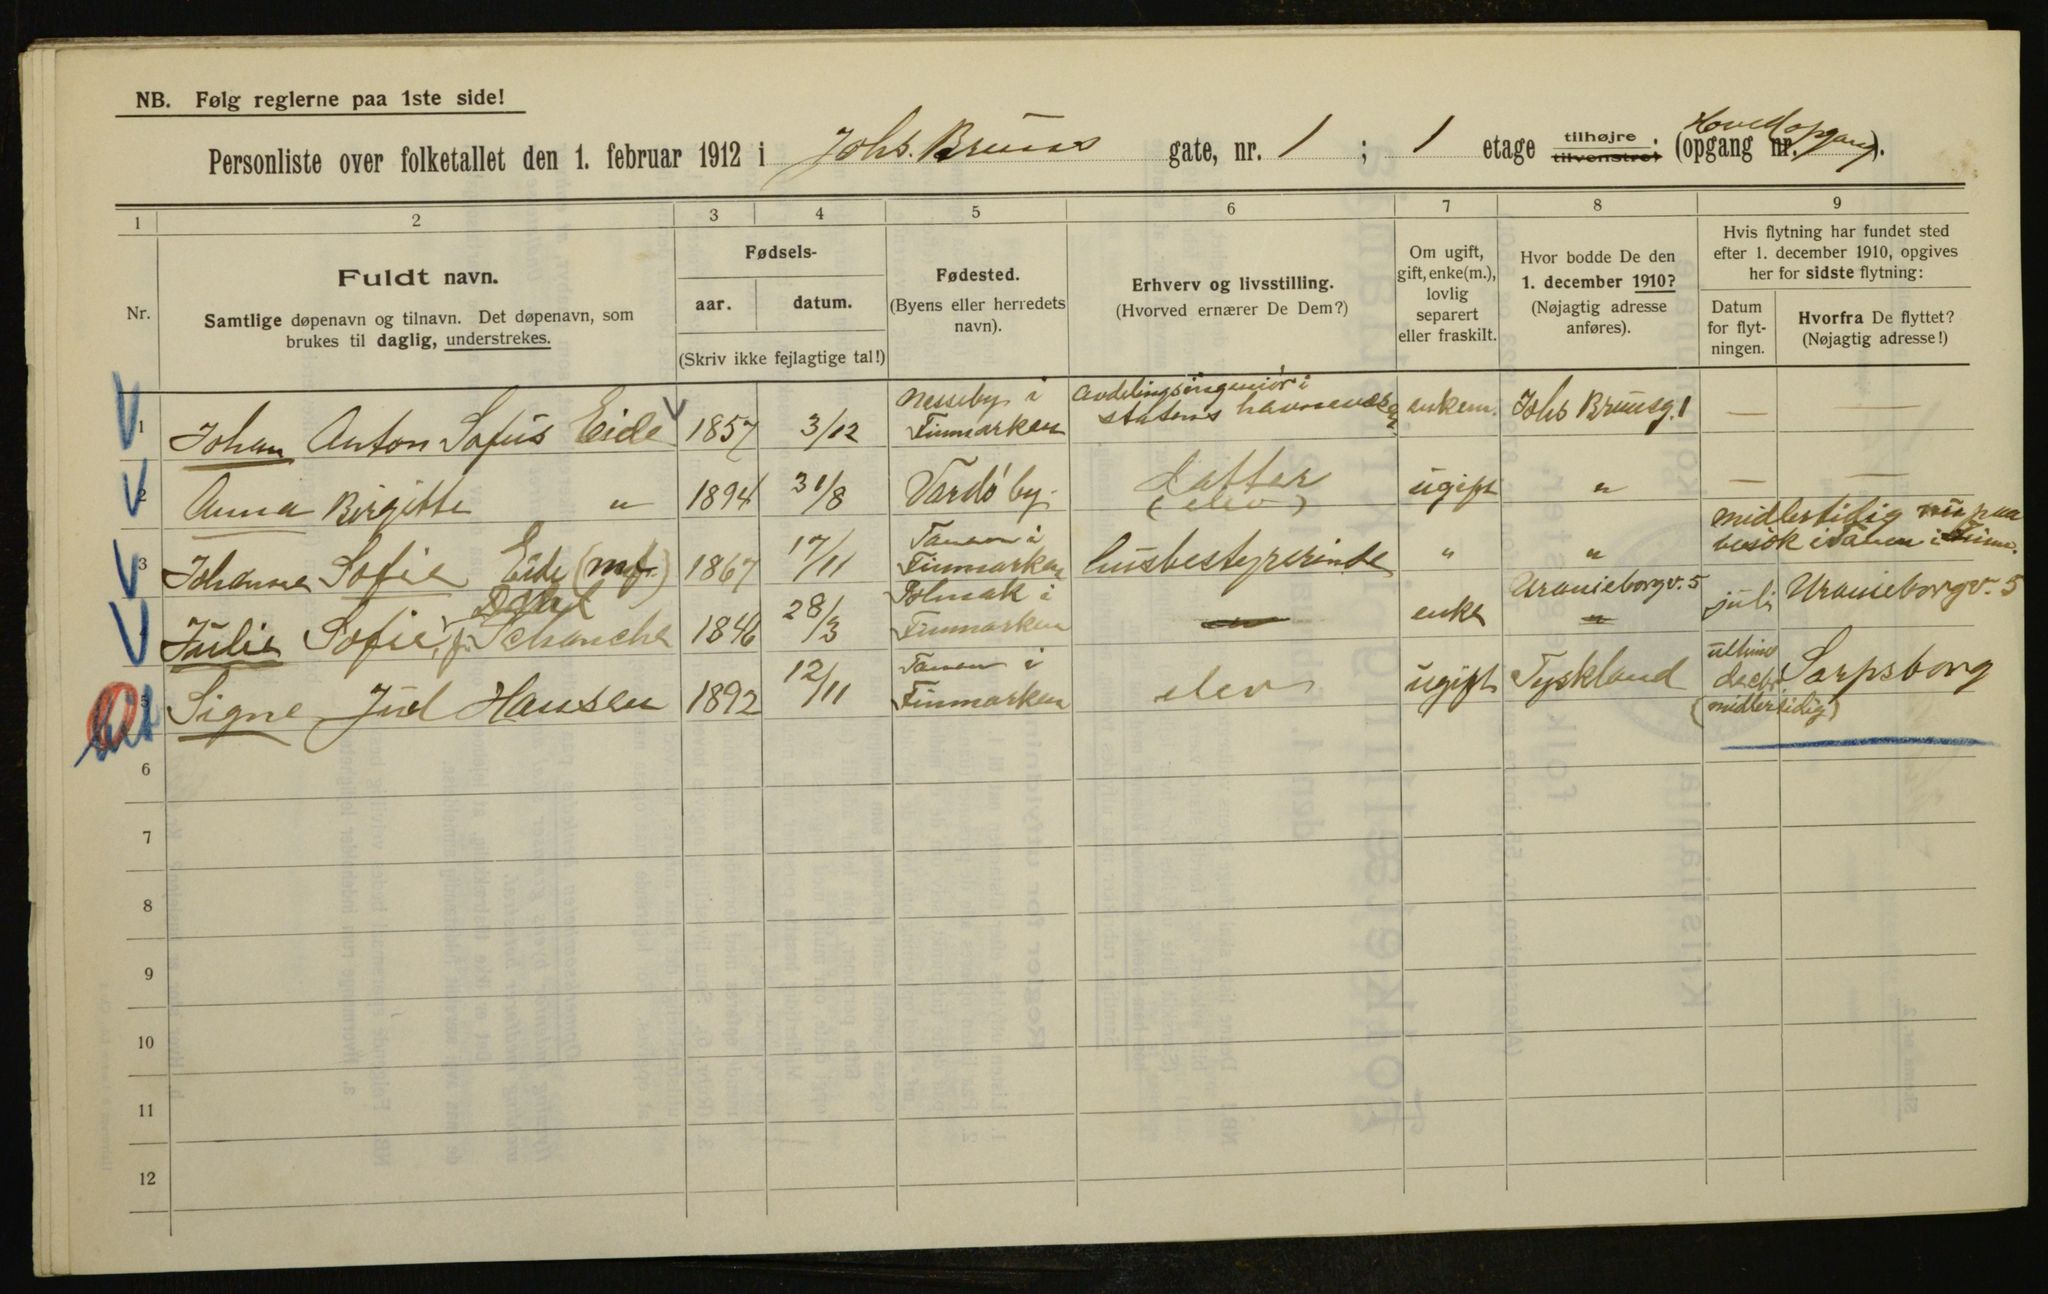 NB. Følg reglerne paa 1ste side!
Personliste over folketallet den 1. februar 1912 i Johs. Bruns gate, nr. 1 ; 1 etage tilhøjre tilvenstre ; (opgang nr. Hovedopgang).
1 2 3 4 5 6 7 8 9
Nr.
Fuldt navn.
Samtlige døpenavn og tilnavn. Det døpenavn, som
brukes til daglig, understrekes.
Fødsels-
aar. datum.
(Skriv ikke fejlagtige tal!)
Fødested.
(Byens eller herredets
navn).
Erhverv og livsstilling.
(Hvorved ernærer De Dem?)
Om ugift,
gift, enke(m.),
lovlig
separert
eller fraskilt.
Hvor bodde De den
1. december 1910?
(Nøjagtig adresse
anføres).
Hvis flytning har fundet sted
efter 1. december 1910, opgives
her for sidste flytning:
Datum
for flyt-
ningen.
Hvorfra De flyttet?
(Nøjagtig adresse!)
1 Johan Anton Sofus Eide 1857 3/12 Nesseby i Finmarken Avdelingsingeniør i statens havnevæsen enkem. Johs Brunsg. 1 — —
2 Anna Birgitte " 1894 31/8 Vardø by. datter (elev) ugift " — —
3 Johanna Sofie Eide 1867 17/11 Tanen i Finmarken husbestyrerinde " " midlertidig paa besøk i Tanen i Finm.
4 Julie Sofie, Dahl f. Schanche 1846 28/3 Polmak i Finmarken " enke Uranieborgv. 5 " juli Uranieborgv. 5
5 Signe Jul Hansen 1892 12/11 Tanen i Finmarken elev ugift Tyskland ultimo decbr. (midlertidig) Sarpsborg
6
7
8
9
10
11
12